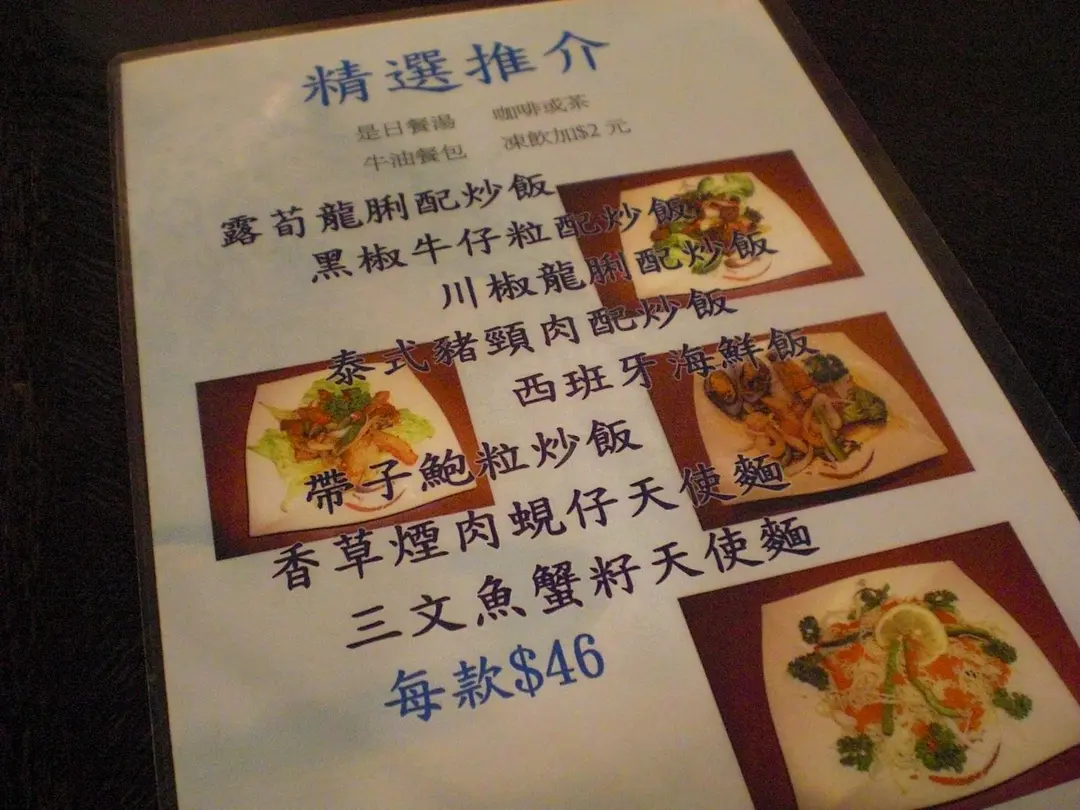 精選推介
是日餐湯 咖啡或茶
牛油餐包 凍飲加$2 元
露荀龍脷配炒飯
黑椒牛仔粒配炒飯
川椒龍脷配炒飯
泰式豬頸肉配炒飯
西班牙海鮮飯
帶子鮑粒炒飯
香草煙肉蜆仔天使麵
三文魚蟹籽天使麵
每款$46